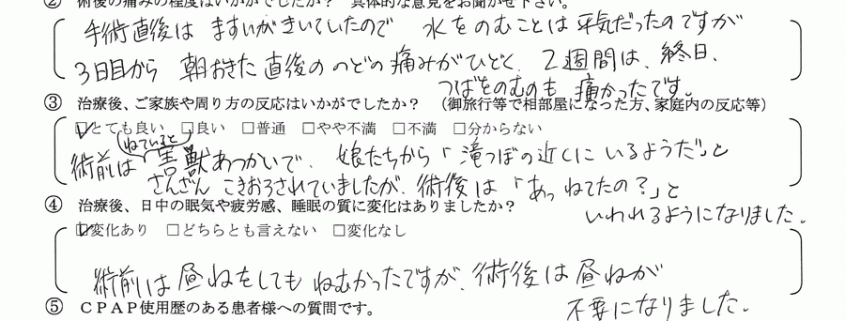 ② 術後の痛みの程度はいかがでしたか? 具体的な意見をお聞かせ下さい。
手術直後は ますいがきいていたので 水をのむことは平気だったのですが
3日目から 朝おきた直後ののどの痛みがひどく、2週間は、終日、
つばをのむのも 痛かったです。
③ 治療後、ご家族や周り方の反応はいかがでしたか? (御旅行等で相部屋になった方、家庭内の反応等)
☑とても良い □良い □普通 □やや不満 □不満 □分からない
ねていると
術前は 害獣あつかいで、娘たちから「滝つぼの近くにいるようだ」と
さんざん こきおろされていましたが、術後は「あっ ねてたの?」と
④ 治療後、日中の眠気や疲労感、睡眠の質に変化はありましたか?
いわれるようになりました。
☑変化あり □どちらとも言えない □変化なし
術前は昼ねをしても ねむかったですが、術後は昼ねが
不要になりました。
⑤ CPAP使用歴のある患者様への質問です。